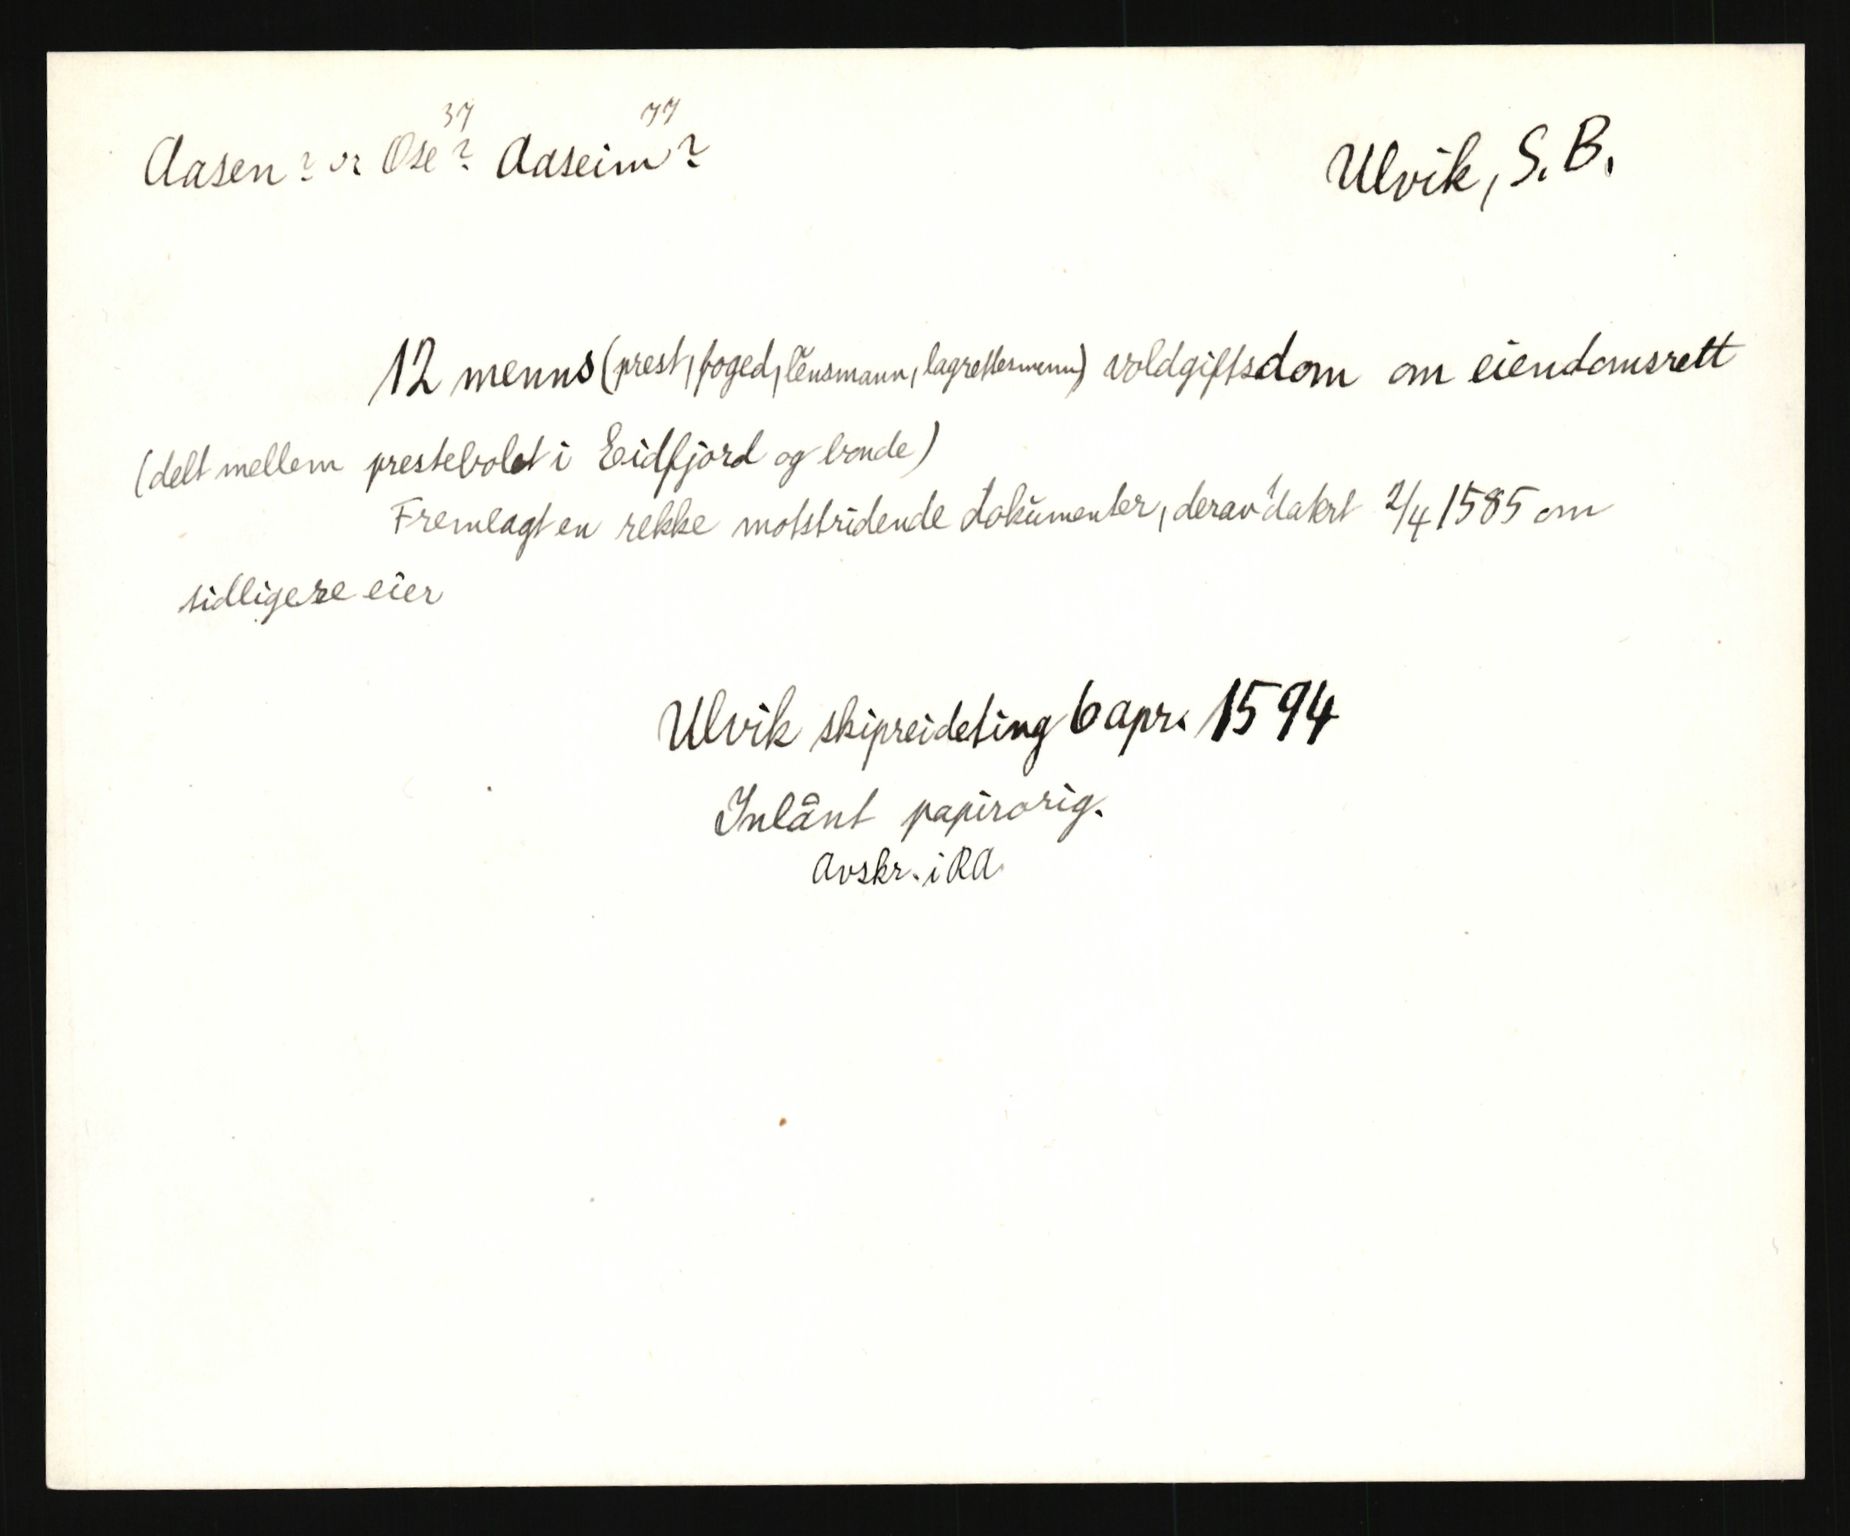 37 77
Aasen? vr Ose? Aaseim? Ulvik, S. B.
12 menns (prest, foged, lensmann, lagrettesmenn) voldgiftsdom om eiendomsrett
(delt mellem prestebolet i Eidfjord og bonde)
Fremlagt en rekke motstridende dokumenter, derav 1 datert 2/4 1585 om
tidligere eier
Ulvik skipreideting 6 apr. 1594
Inlånt papirorig.
Avskr. i RA